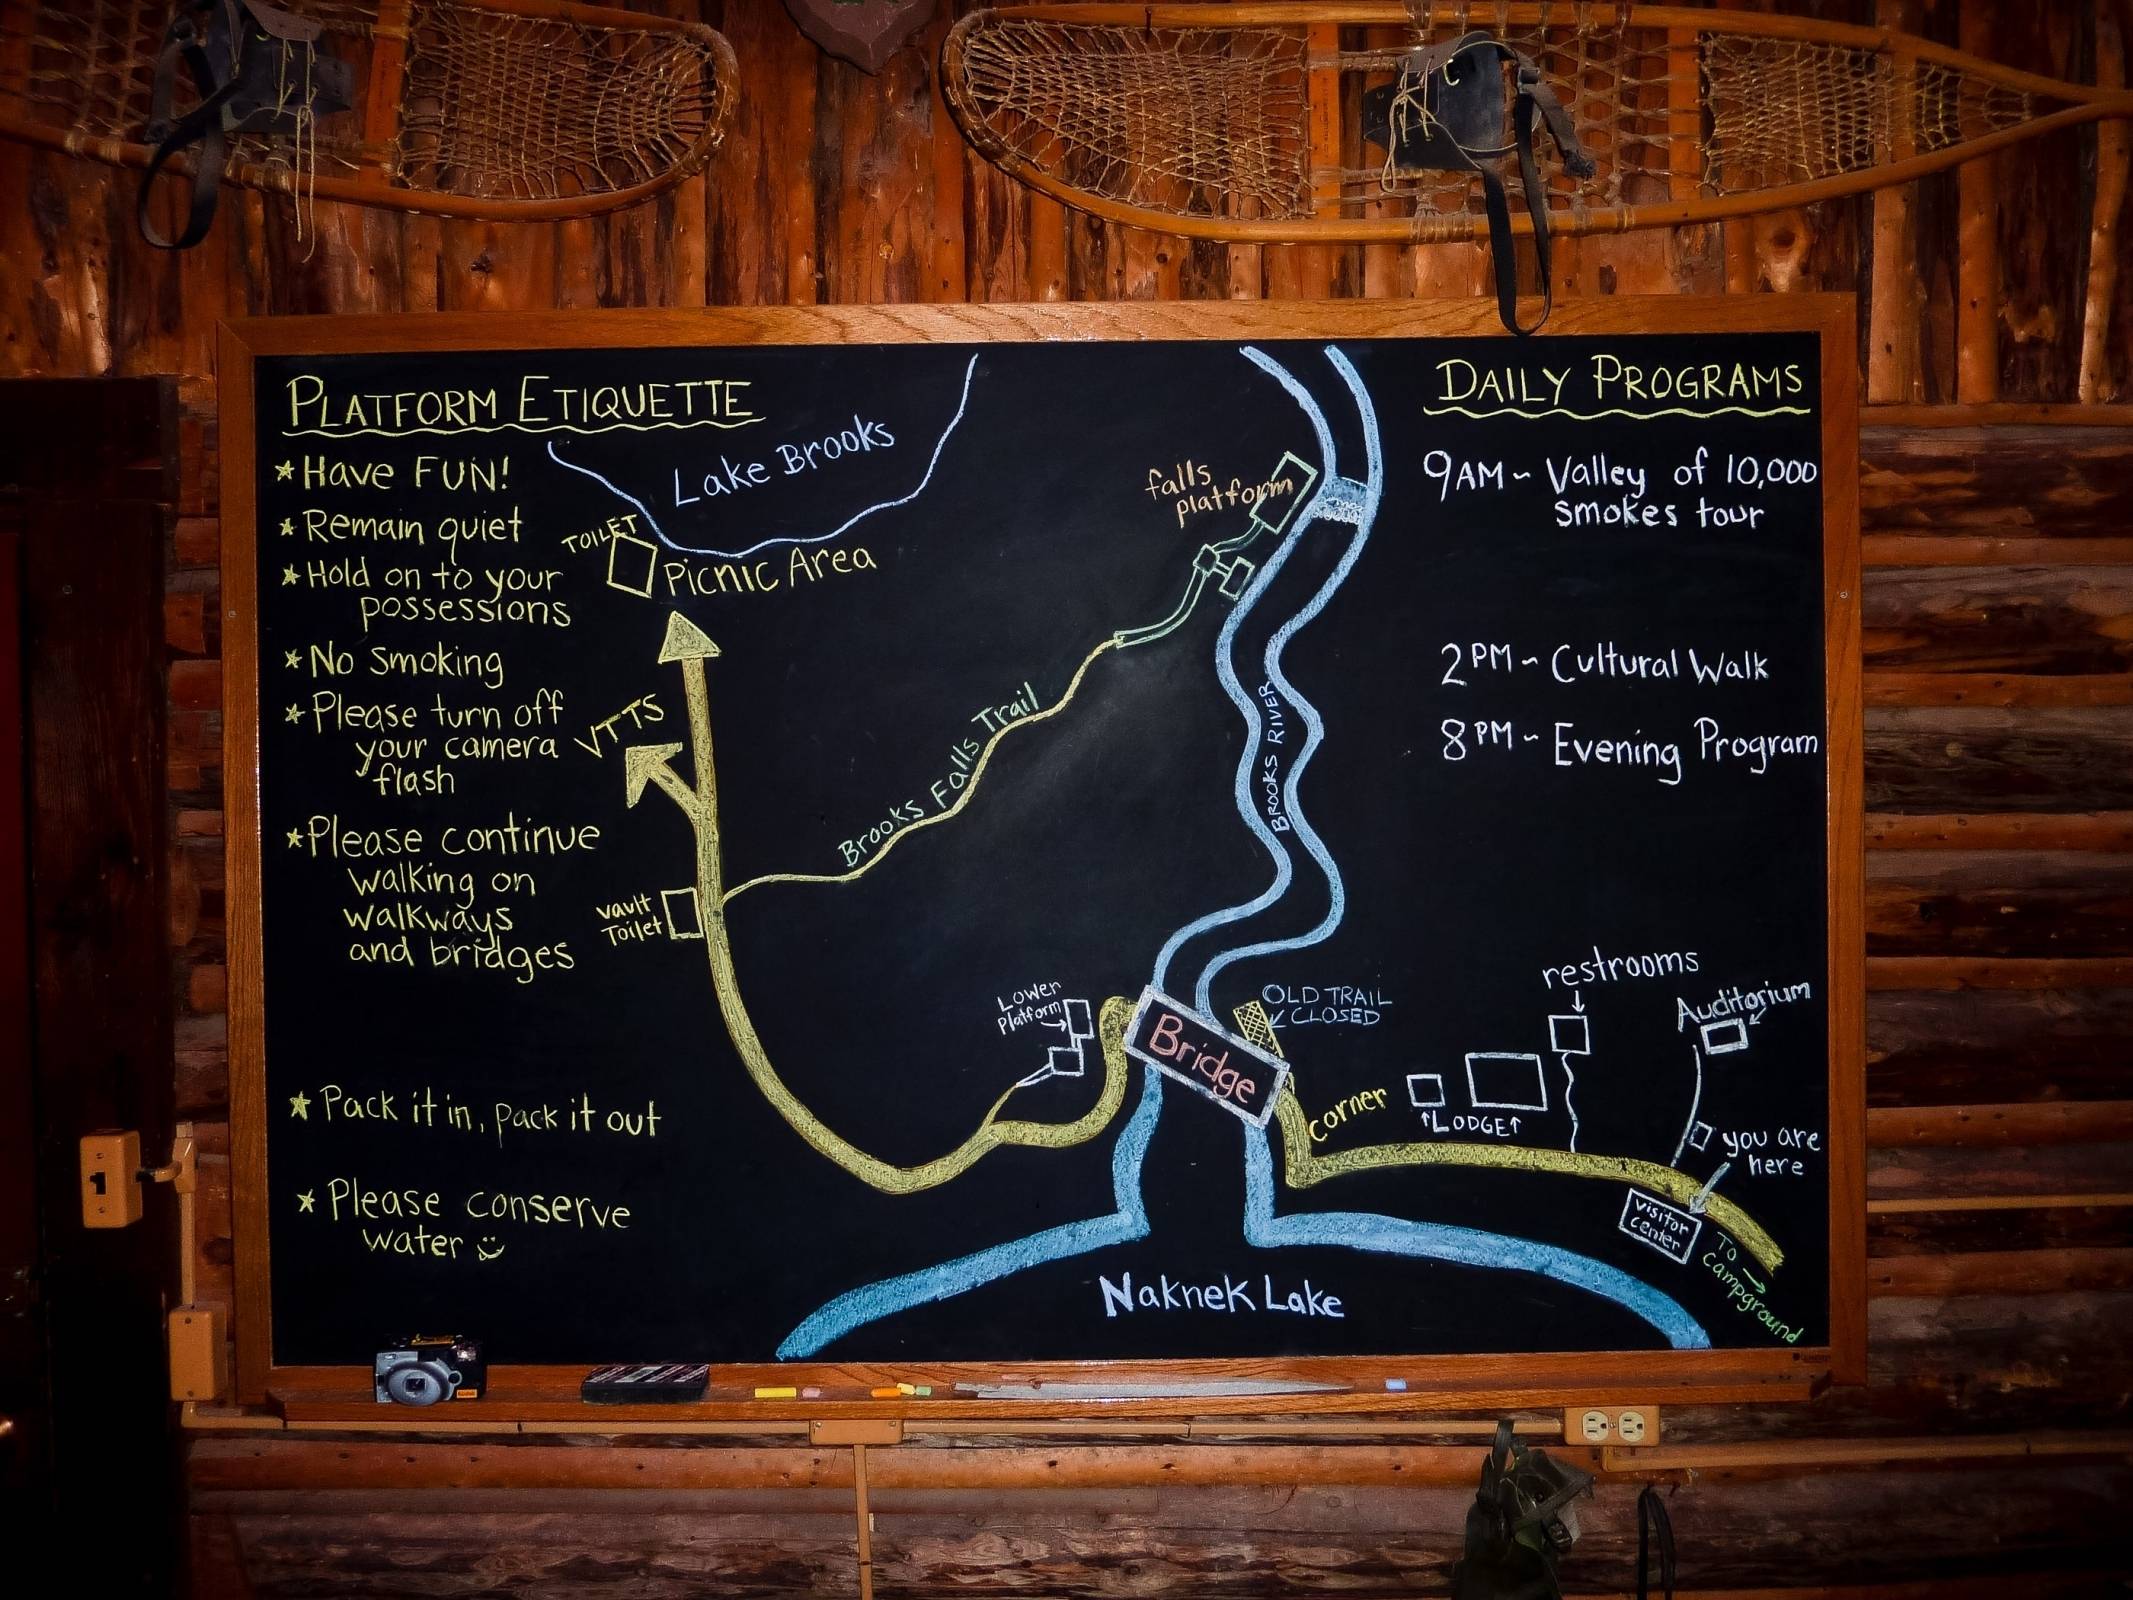 PLATFORM ETIQUETTE
* Have FUN!
* Remain quiet
* Hold on to your
possessions
* No smoking
* Please turn off
your camera
flash
* Please continue
walking on
walkways
and bridges
* Pack it in, pack it out
* Please conserve
water
Lake Brooks
TOILET
Picnic Area
VTTS
Brooks Falls Trail
Vault
Toilet
falls
platform
BROOKS RIVER
Lower
Platform
Bridge
OLD TRAIL
CLOSED
Corner
LODGE
restrooms
Auditorium
you are
here
visitor
center
TO
Campground
Naknek Lake
DAILY PROGRAMS
9AM ~ Valley of 10,000
smokes tour
2PM ~ Cultural Walk
8PM ~ Evening Program